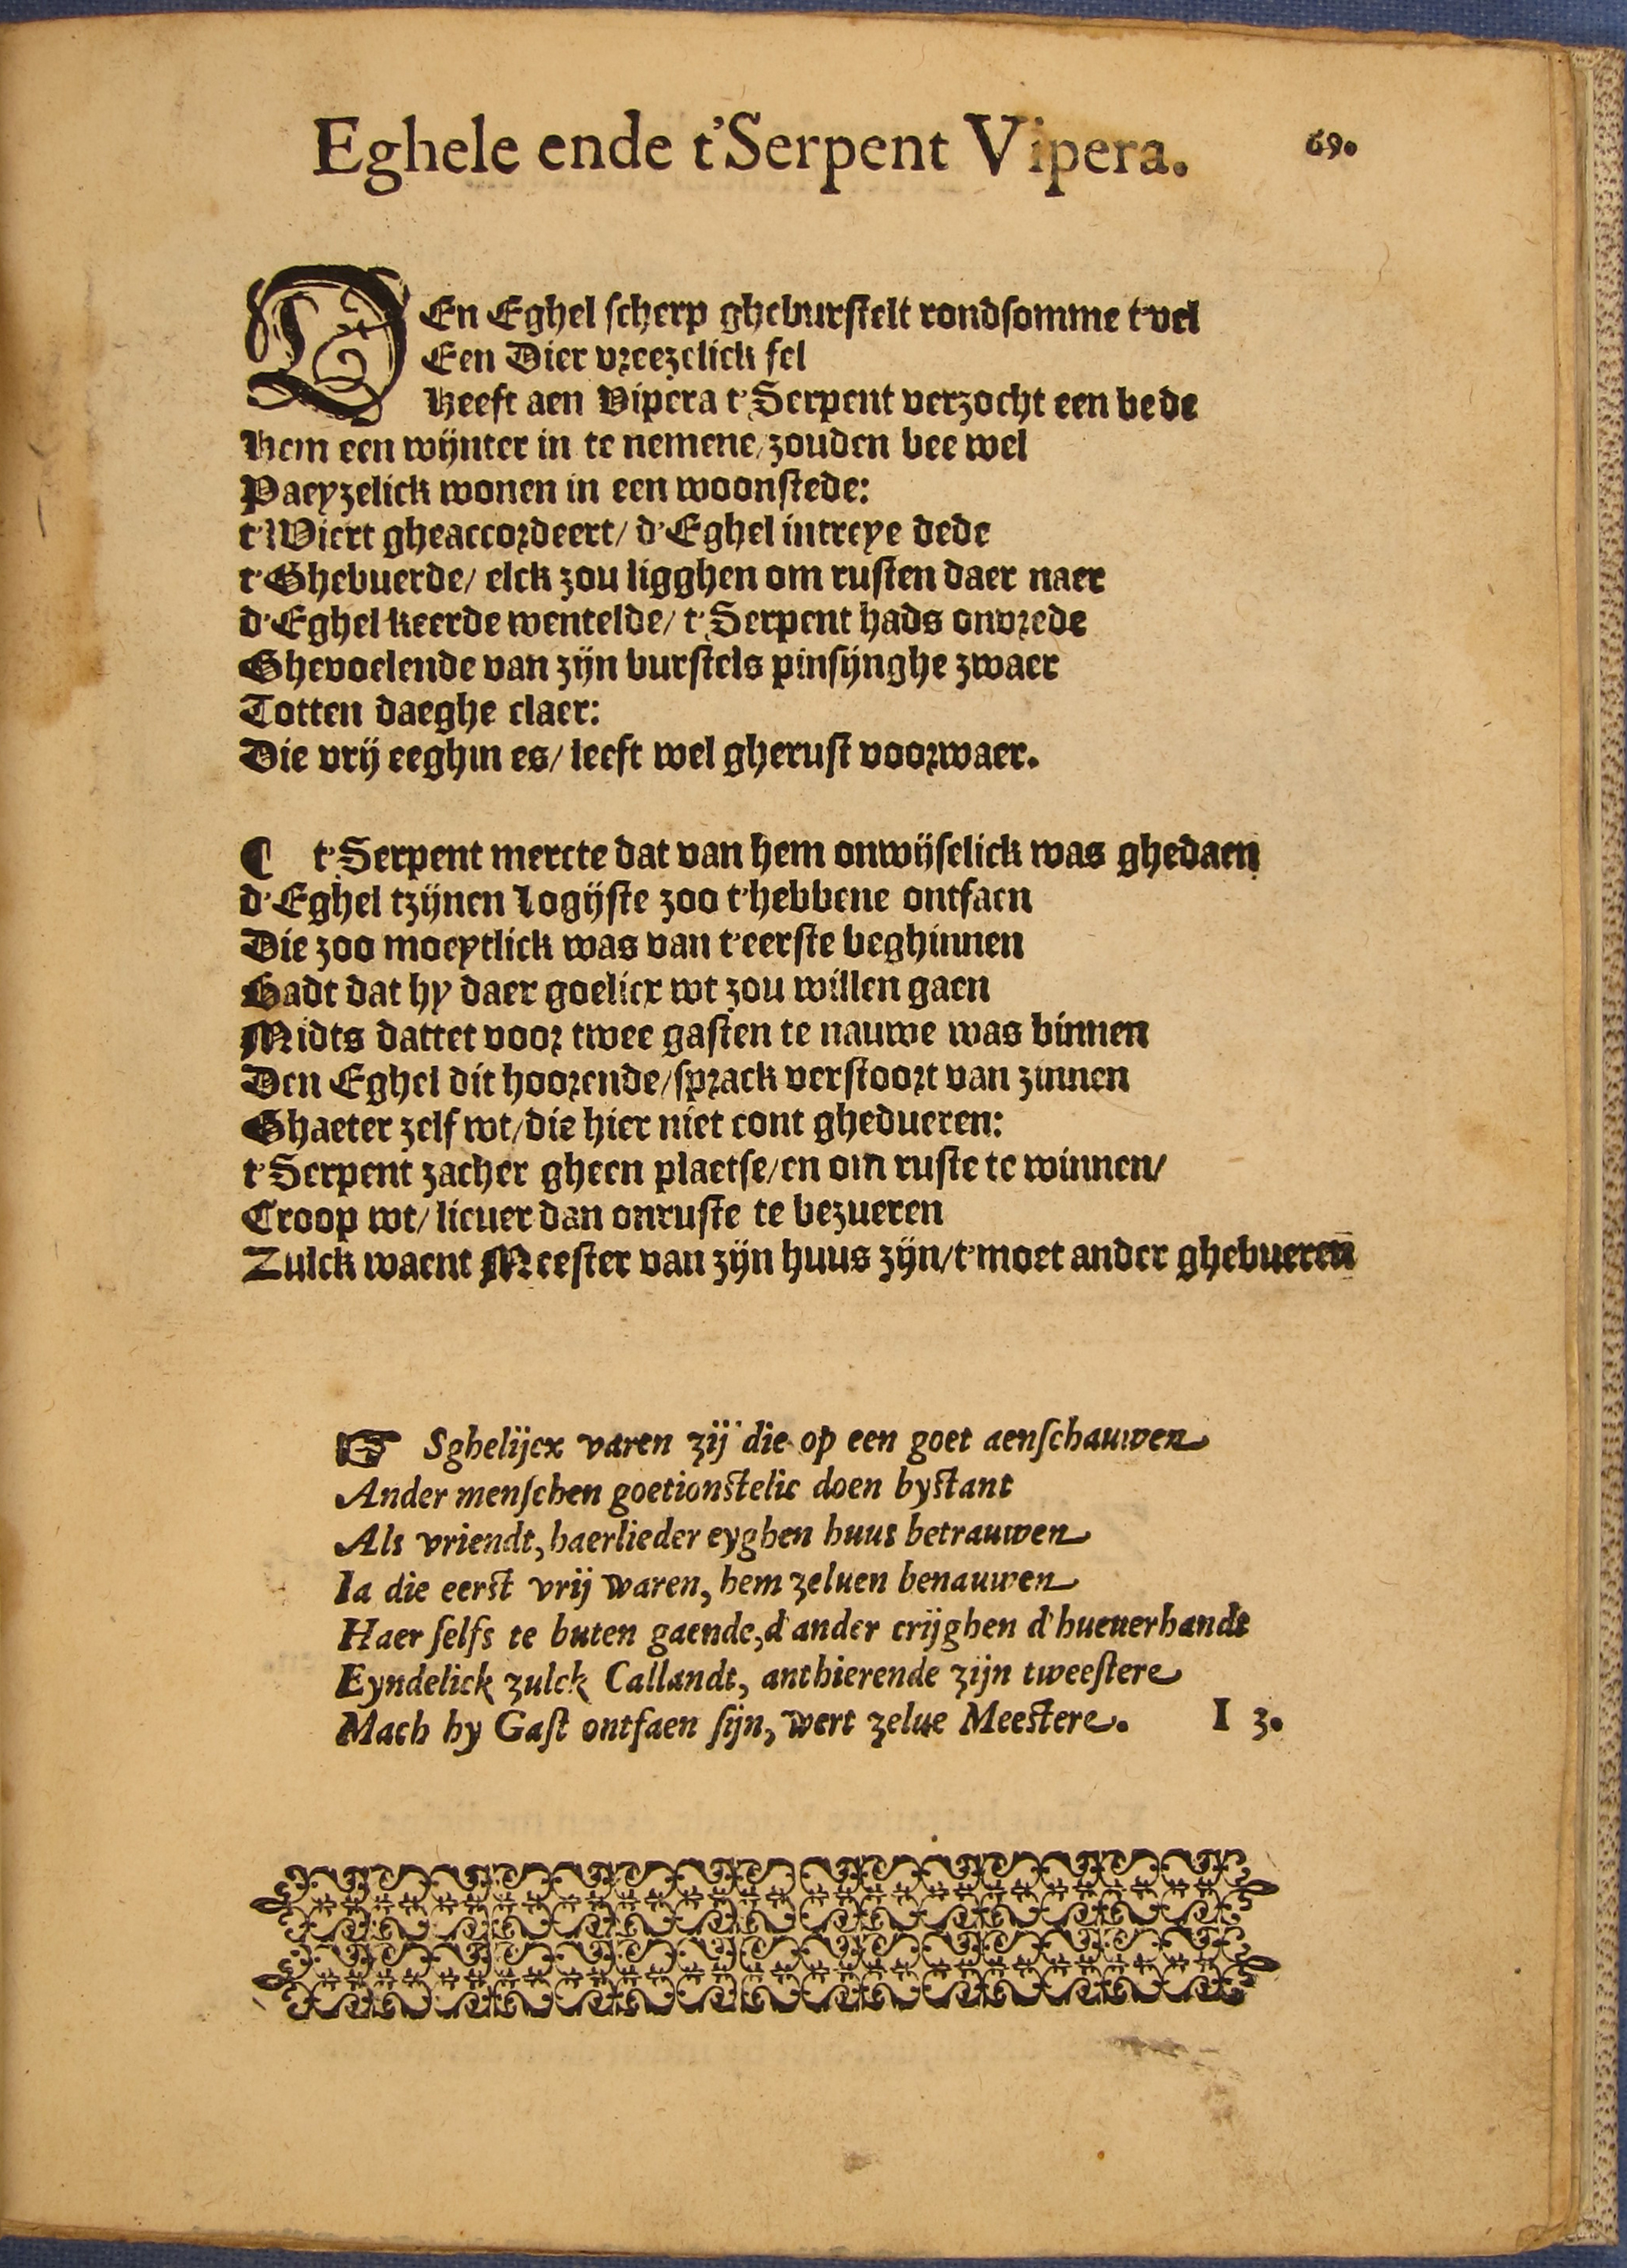 Eghele ende t'Serpent Vipera. 69.
DEn Eghel scherp gheburstelt rondsomme t'vel
Een Dier vreezelick fel
Heeft aen Vipera t'Serpent verzocht een bede
Hem een wijnter in te nemene/ zouden bee wel
Paeyzelick wonen in een woonstede:
t'Wiert gheaccordeert/ d'Eghel intreye dede
t'Ghebuerde/ elck zou ligghen om rusten daer naer
d'Eghel keerde wentelde/ t'Serpent hads onvrede
Ghevoelende van zijn burstels pinsijnghe zwaer
Totten daeghe claer:
Die vrij eeghin es/ leeft wel gherust voorwaer.
¶ t'Serpent mercte dat van hem onwijselick was ghedaen
d'Eghel tzijnen Logijste zoo t'hebbene ontfaen
Die zoo moeytlick was van t'eerste beghinnen
Badt dat hy daer goelicx wt zou willen gaen
Midts dattet voor twee gasten te nauwe was binnen
Den Eghel dit hoorende/ sprack verstoort van zinnen
Ghaeter zelf wt/ die hier niet cont ghedueren:
t'Serpent zacher gheen plaetse/ en om ruste te winnen/
Croop wt/ liever dan onruste te bezueren
Zulck waent Meester van zijn huus zijn/ t'moet ander ghebuerē
☞ Sghelijcx varen zij die op een goet aenschauwen
Ander menschen goetionstelic doen bystant
Als vriendt, haerlieder eyghen huus betrauwen
Ia die eerst vrij waren, hem zeluen benauwen
Haer selfs te buten gaende, d'ander crijghen d'hueuerhandt
Eyndelick zulck Callandt, anthierende zijn tweestere
Mach hy Gast ontfaen sijn, wert zelue Meestere. I 3.